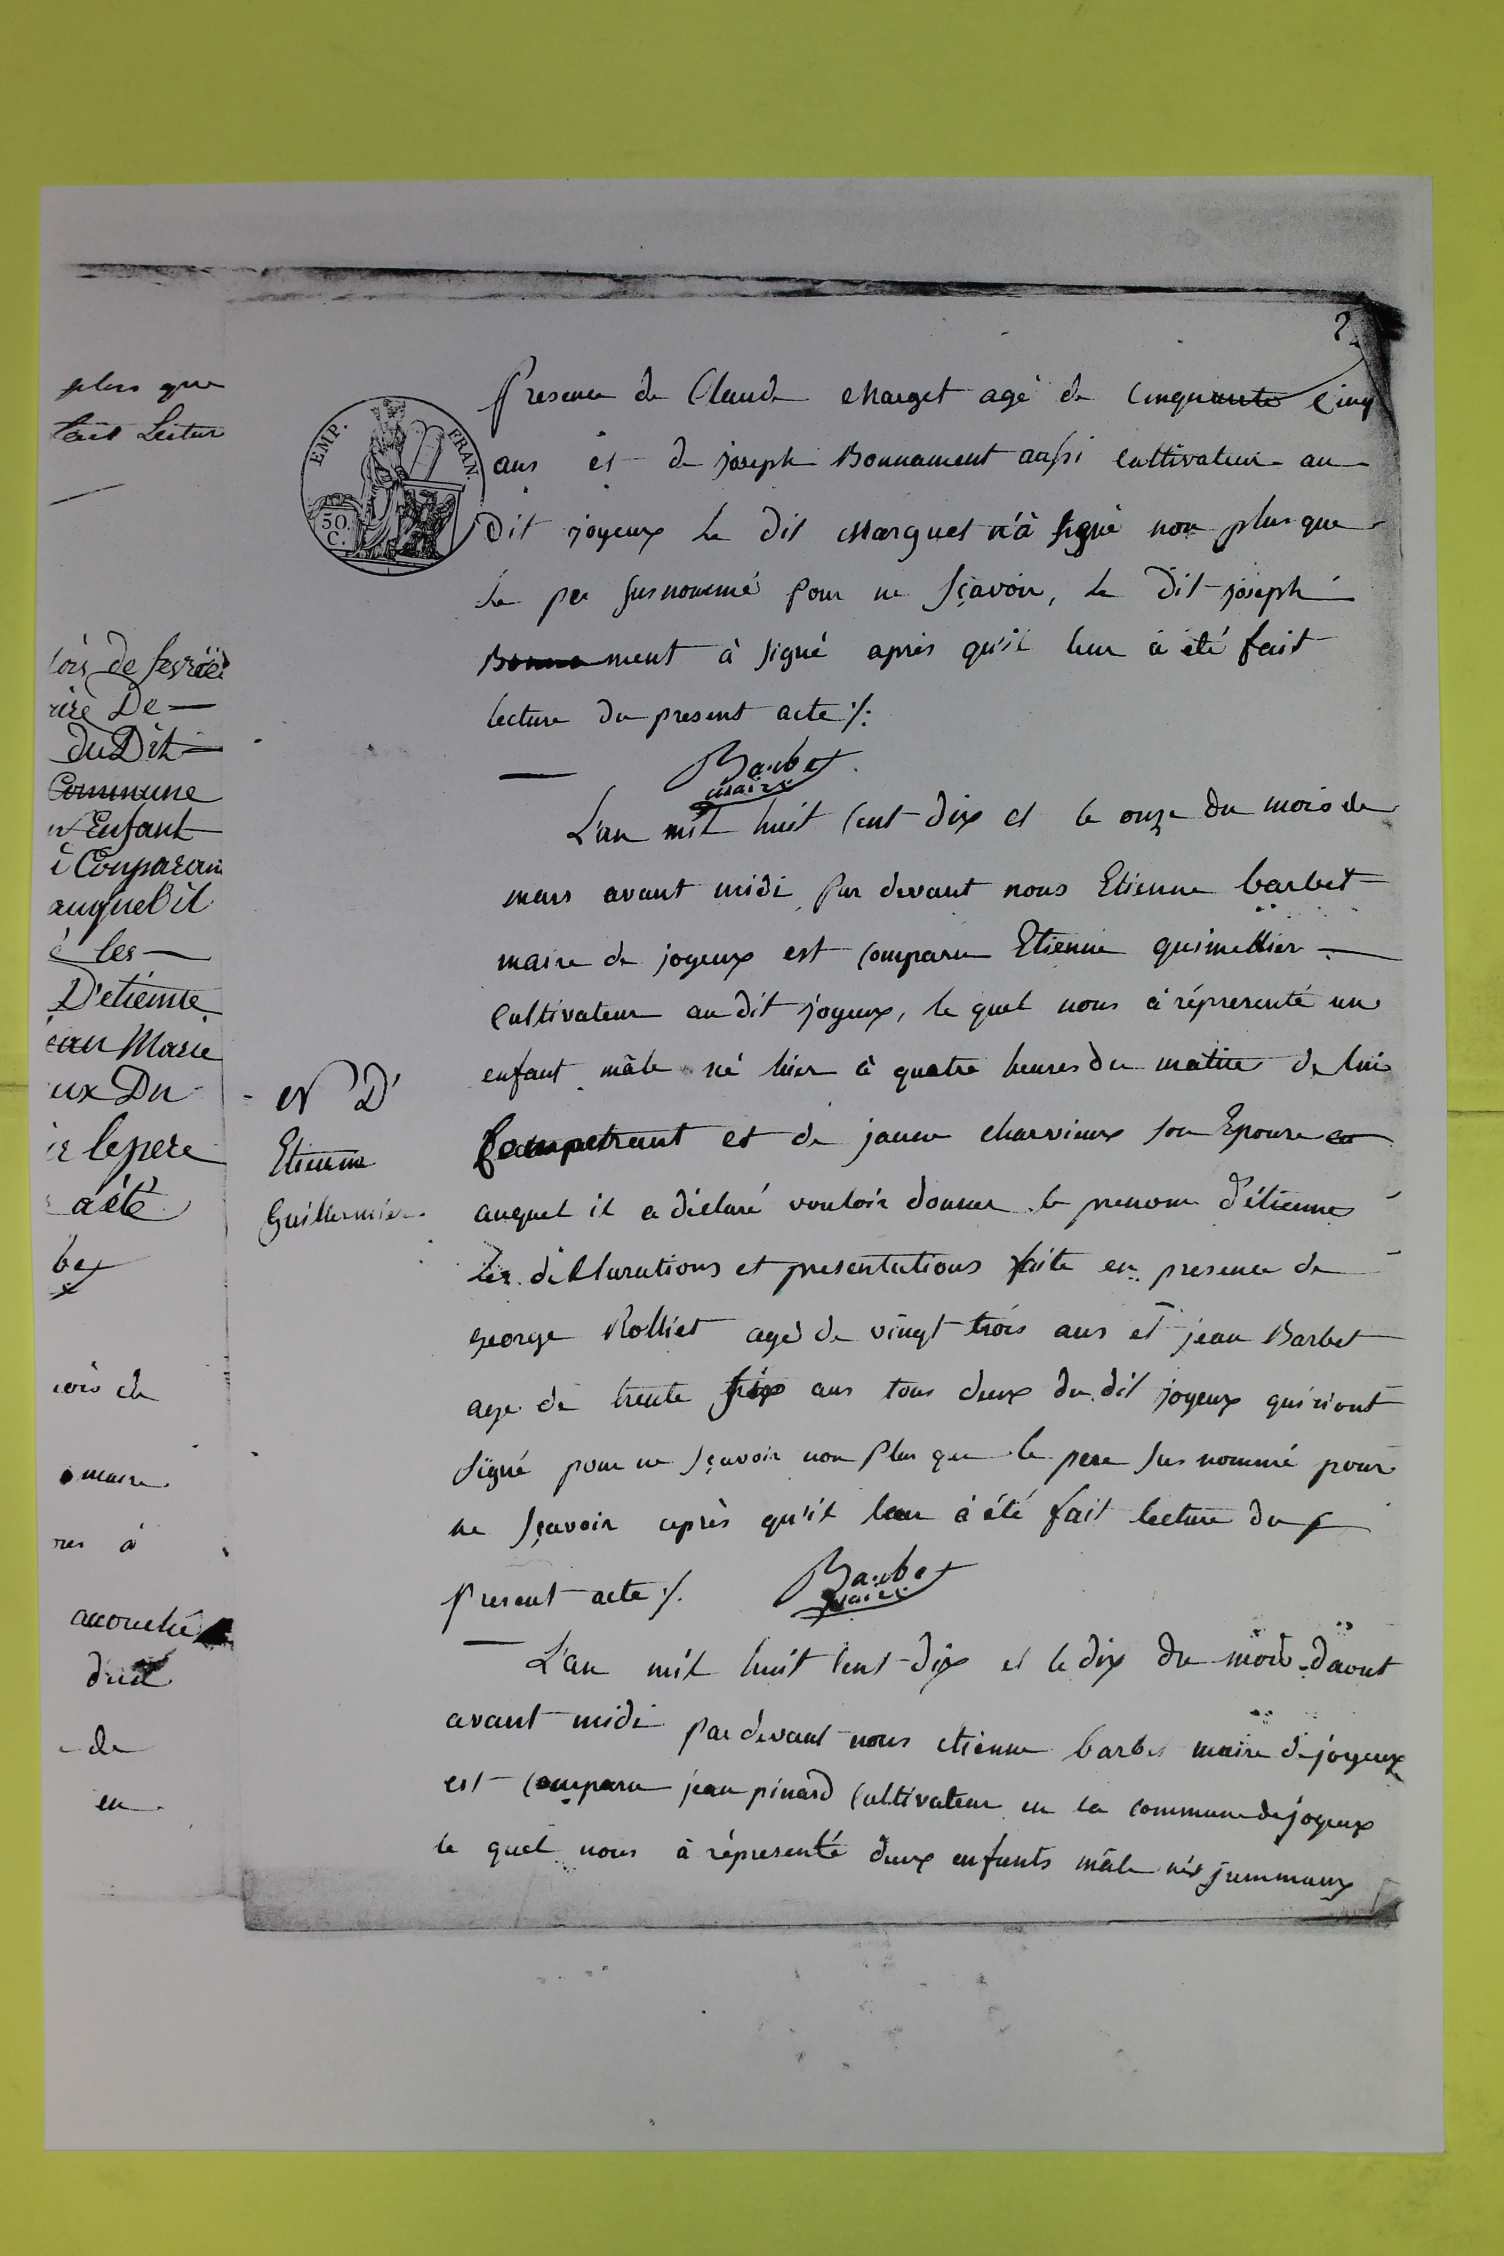 2
plus que
fait Lectur
EMP. FRAN.
50. C.
presence de Claude Marget agé de cinquante cinq
ans et de joseph Bonnament aussi cultivateur au
Dit joyeux Le dit Marguet n'à signé non plus que
le per susnommé pour ne sçavoir, le dit joseph
Bonnament à signé après qu'il leur à été fait
lecture du present acte ./.
Barbet
maire
rire De
du Dit
Commune
Enfant
Conparan
auquel il
les
D'etienne
ean Marie
ux Du
le pere
a été
be
L'an mil huit Cent dix et le onze du mois de
mars avant midi par devant nous Etienne barbet
maire de joyeux est comparu Etienne guimellier
Cultivateur au dit joyeux, le quel nous à répresenté un
enfant mâle né hier à quatre heures du matin de lui
Comparant et de janne charvieux son Epouse
auquel il a déclaré vouloir donner le prenom d'étienne
Les déclarations et presentations faite en presence de
George Rolliet agé de vingt trois ans et jean Barbet
age de trente six ans tous deux du dit joyeux qui n'ont
signé pour ne sçavoir non Plus que le pere sus nommé pour
ne sçavoir après qu'il leur à été fait lecture du
present acte ./.
Barbet
maire
N D'
Etienne
Guillermier
maire
res à
accouché
de
en
L'an mil huit Cent dix et le dix du mois d'aout
avant midi par devant nous etienne barbet maire de joyeux
est comparu jean pinard Cultivateur en la commune de joyeux
le quel nous à répresenté deux enfants mâle nés jummaux